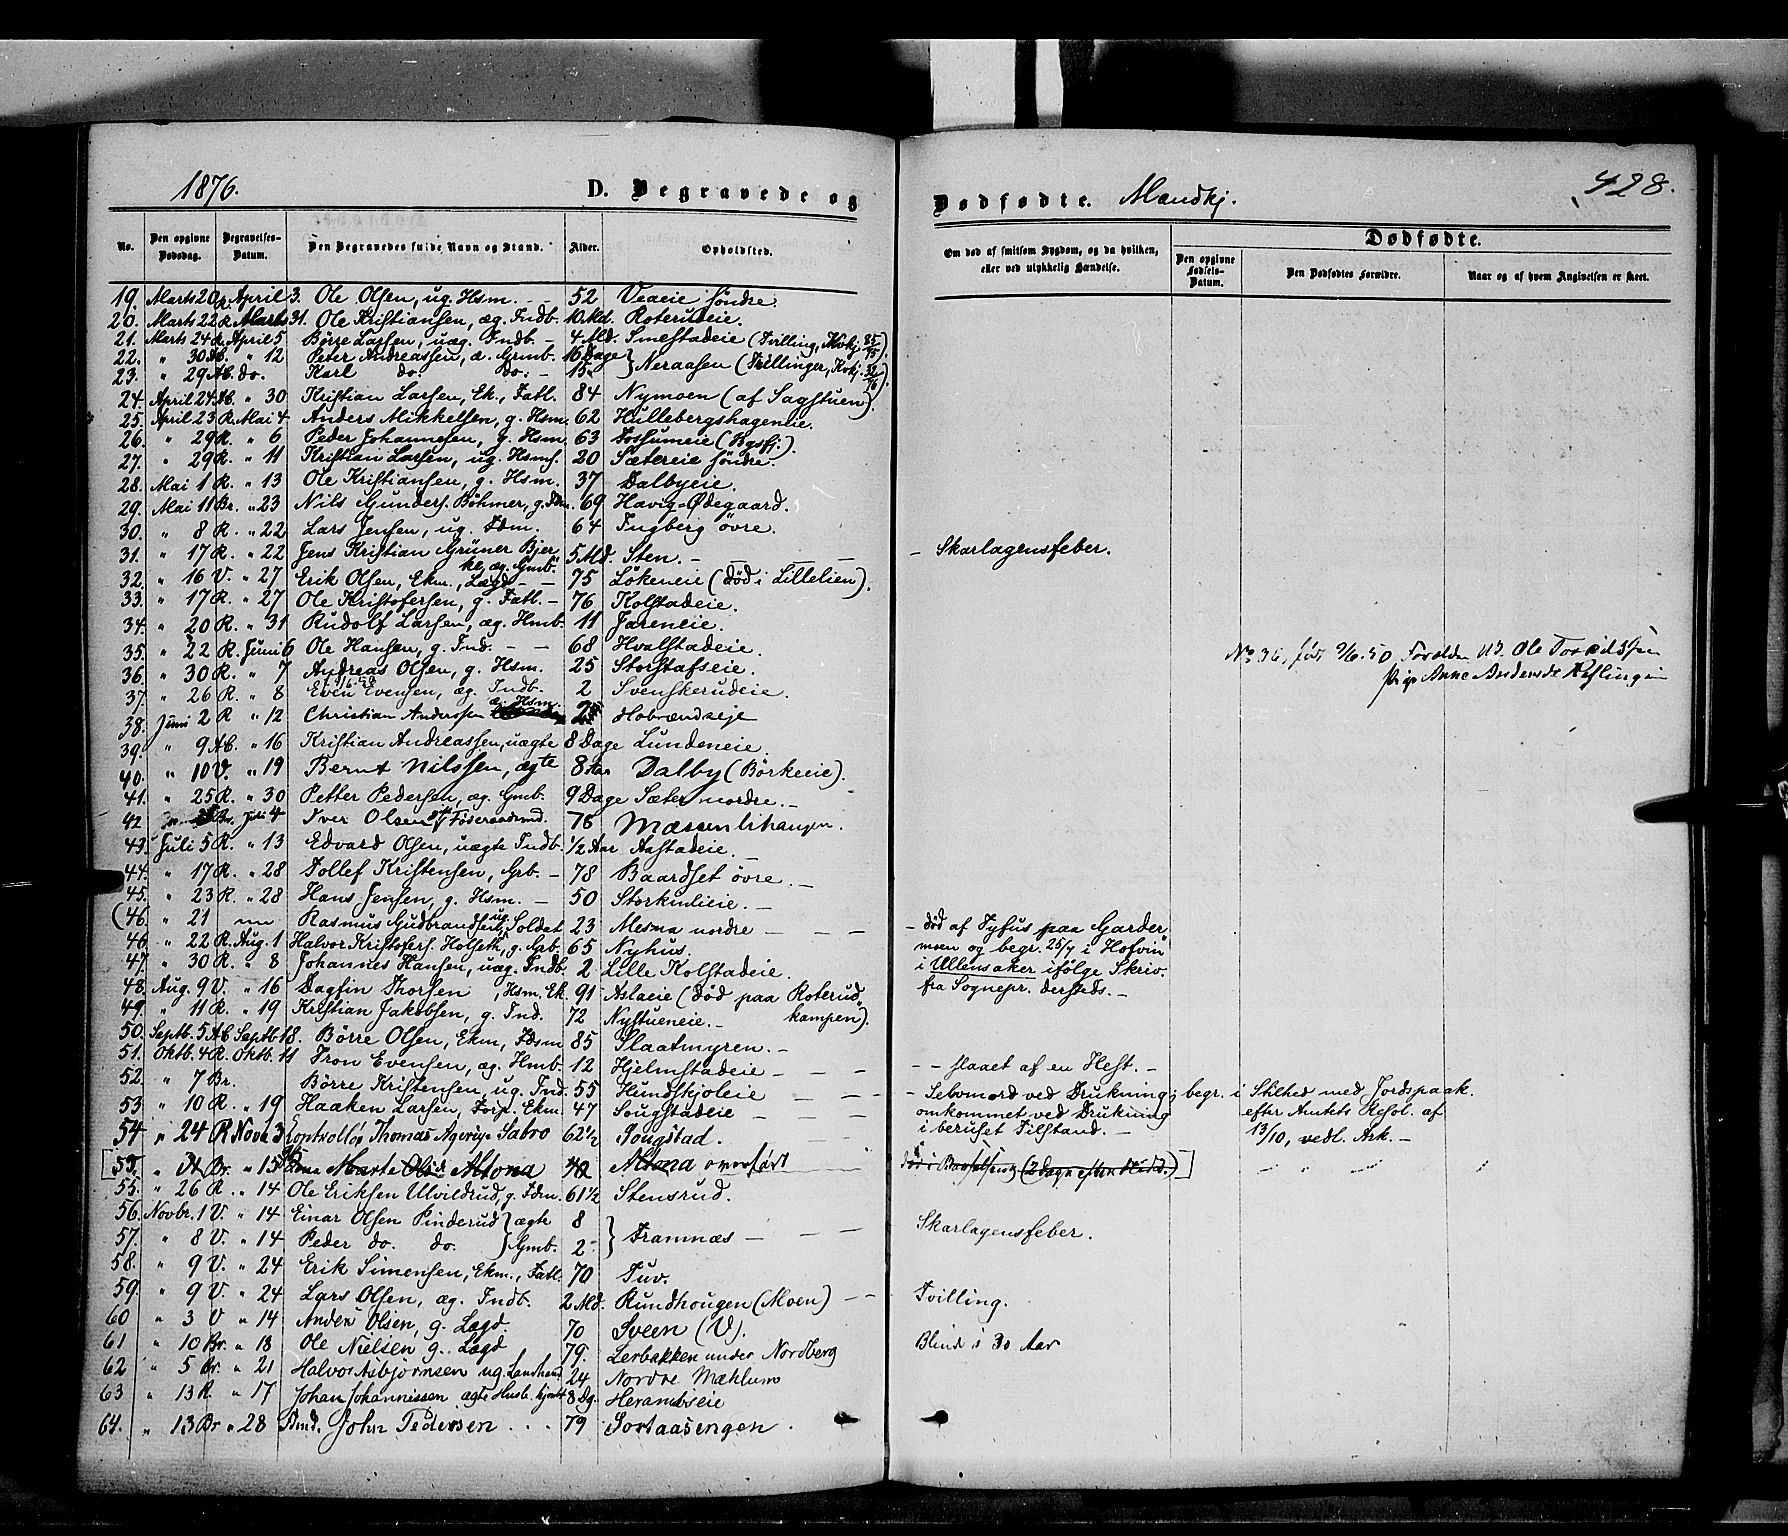 1876. D. Begravede og Dødfødte. Mandkj. 428.
No. Den opgivne Dødsdag. Begravelses-Datum. Den Begravedes fulde Navn og Stand. Alder. Opholdsted. Om død af smitsom Sygdom, og da hvilken, eller ved ulykkelig Hændelse. Dødfødte. Den opgivne Fødsels-Datum. Den Dødfødtes Forældre. Naar og af hvem Angivelsen er skeet.
19. Marts 20 R. April 3. Ole Olsen, ug. Hsm. 52 Veaeie søndre.
20. Marts 22 R. Marts 31. Ole Kristiansen, æg. Indb. 10 Md. Roterudeie.
21. Marts 24 R. April 5 Børre Larsen, uæg. Indb. 4 Md. Smestadeie (Tvilling, 85/75).
22. " 30 Ab. " 12 Peter Andreassen, æ. Grmb. 16 Dage } Neraasen (Trillinger, Kvkj. 32/76).
23. " 29 Ab. do. Karl do. do. 15
24. April 24 Ab. " 30 Kristian Larsen, Ek., Fatl. 84 Nymoen (af Sagstuen).
25. April 23 R. Mai 4 Anders Mikkelsen, g. Hsm. 62 Hullebergshageneie.
26. " 29 R. " 6 Peder Johannesen, g. Hsm. 63 Fossumeie
27. " 29 R. " 11 Kristian Larsen, ug. Hsms. 20 Sætereie søndre.
28. Mai 1 R. " 13 Ole Kristiansen, g. Hsm. 37 Dalbyeie.
29. Mai 11 Br. " 23 Nils Gunders. Bøhmer, g. 69 Havig-Ødegaard.
30. " 8 R. " 22 Lars Jensen, ug. Fdm. 64 Ingberg øvre.
31. " 17 R. " 22 Jens Kristian Grüner Bjerke, æg. Gmb. 5 Md. Sten. Skarlagensfeber.
32. " 16 V. " 27 Erik Olsen, Ekm., Lægd 75 Løkeneie (død i Lillelien).
33. " 17 R. " 27 Ole Kristofersen, g. Fatl. 76 Kolstadeie.
34. " 20 R. " 31 Rudolf Larsen, æg. Hmb. 11 Jareneie.
35. " 22 R. Juni 6 Ole Hansen, g. Ind. 68 Hvalstadeie.
36. " 30 R. " 7 Andreas Olsen, g. Hsm. 25 Storstafseie. No 36, født 2/6. 50 Forældre Ole Toskildsen
Anne Andersd.
37. " 26 R. " 8 Even Evensen, æg. Indb. 2 Svenskerudeie.
38. Juni 2 R " 12 Christian Anderssen g. Hsm. 25 Hobrændseje
39. " 9 Ab. " 16 Kristian Andreassen, uægte 8 Dage Lundeneie.
40. " 10 V. " 19 Bernt Nilssen, ægte 8 Aar Dalby (Børkeeie).
41. " 25 R. " 30 Petter Pedersen, æg. Gmb. 9 Dage Sæter nordre.
42 Br. Juli 4 Iver Olsen Føderaadsmd. 76 Mæssenlihaugen.
43. Juli 5 R. " 13 Edvard Olsen, uægte Indb. 1/2 Aar Aastadeie.
44. " 17 R. " 28 Tollef Kristensen, Grb. 78 Baardset øvre.
45. " 23 R. " 28 Hans Jensen, g. Hsm. 50 Storkinlieie.
(46. " 21 Rasmus Gudbrandsen, ug. Soldat 23 Mesna nordre død af Tyfus paa Garder
46. " 22 R. Aug. 1 Halvor Kristofers. Holseth, g. Grb. 65 Nyhus. moen og begr. 25/7 i Hofvin
47. " 30 R. " 8 Johannes Hansen, uæg. Indb. 2 Lille Kolstadeie. i Ullensaker ifølge Skriv.
48. Aug. 9 V. " 16 Dagfin Thorsen, Hsm. Ek. 91 Aslaeie (død paa Roterud kampen). fra Sognepr. dersteds.
49. " 11 R. " 19 Kristian Jakobsen, g. Ind. 72 Nystueneie.
50. Septb. 5 Ab Septb 18. Børre Olsen, Ekm, Fdsm 85 Slaatmyren.
51. Oktb. 4 R. Oktb. 11 Tron Evensen, æg. Hmb. 12 Hjelmstadeie slaaet af en Hest.
52. " 7 Br. Børre Kristensen, ug. Ind. 55 Hundskjoleie Selvmord ved Drukning; begr. i Stilhed med Jordspaak.
53. " 10 R. " 19 Haaken Larsen, Forp. Ekm. 47 Sougstadeie omkommet ved Drukning i beruset Tilstand. efter Amtets Resol. af 13/10, vedl. Ark.
54 " 24 R Novb 3 Controllør Thomas Sabro 62 1/2 Sougstad.
[55. Br. " 15 Marte Altona 42 Altona overført død i Barselseng (2 Dage efter Nedk.)]
55. " 26 R. " 14 Ole Eriksen Ulvildrud, g. Fdm. 61 1/2 Stensrud.
56. Novbr. 1 V. " 14 Einar Olsen Pinderud } ægte 8 } Framnæs Skarlagensfeber.
57. " 8 V. " 14 Peder do. do. } Gmb. 2
58. " 9 V. " 24 Erik Simensen, Ekm., Fatl. 70 Tuv.
59. " 9 V. " 24 Lars Olsen, æg. Indb. 2 Md. Rundhougen (Moen) Tvilling.
60 " 3 V " 14 Anders Olsen, g. Lægd. 70 Sveen (V).
61 " 10 Br. " 18 Ole Nielsen g. Lægd 79. Lerbakken under Nordberg Blind i 30 Aar
62 " 5 Br " 21 Halvor Asbjørnsen ug. Landhand. 24 Nordre Mæhlum
63 " 13 R. " 17 Johan Johannissen ægte 8 Dg. Herambseie
64. " 13 Br " 28 John Pedersen 79 Sortaasengen.